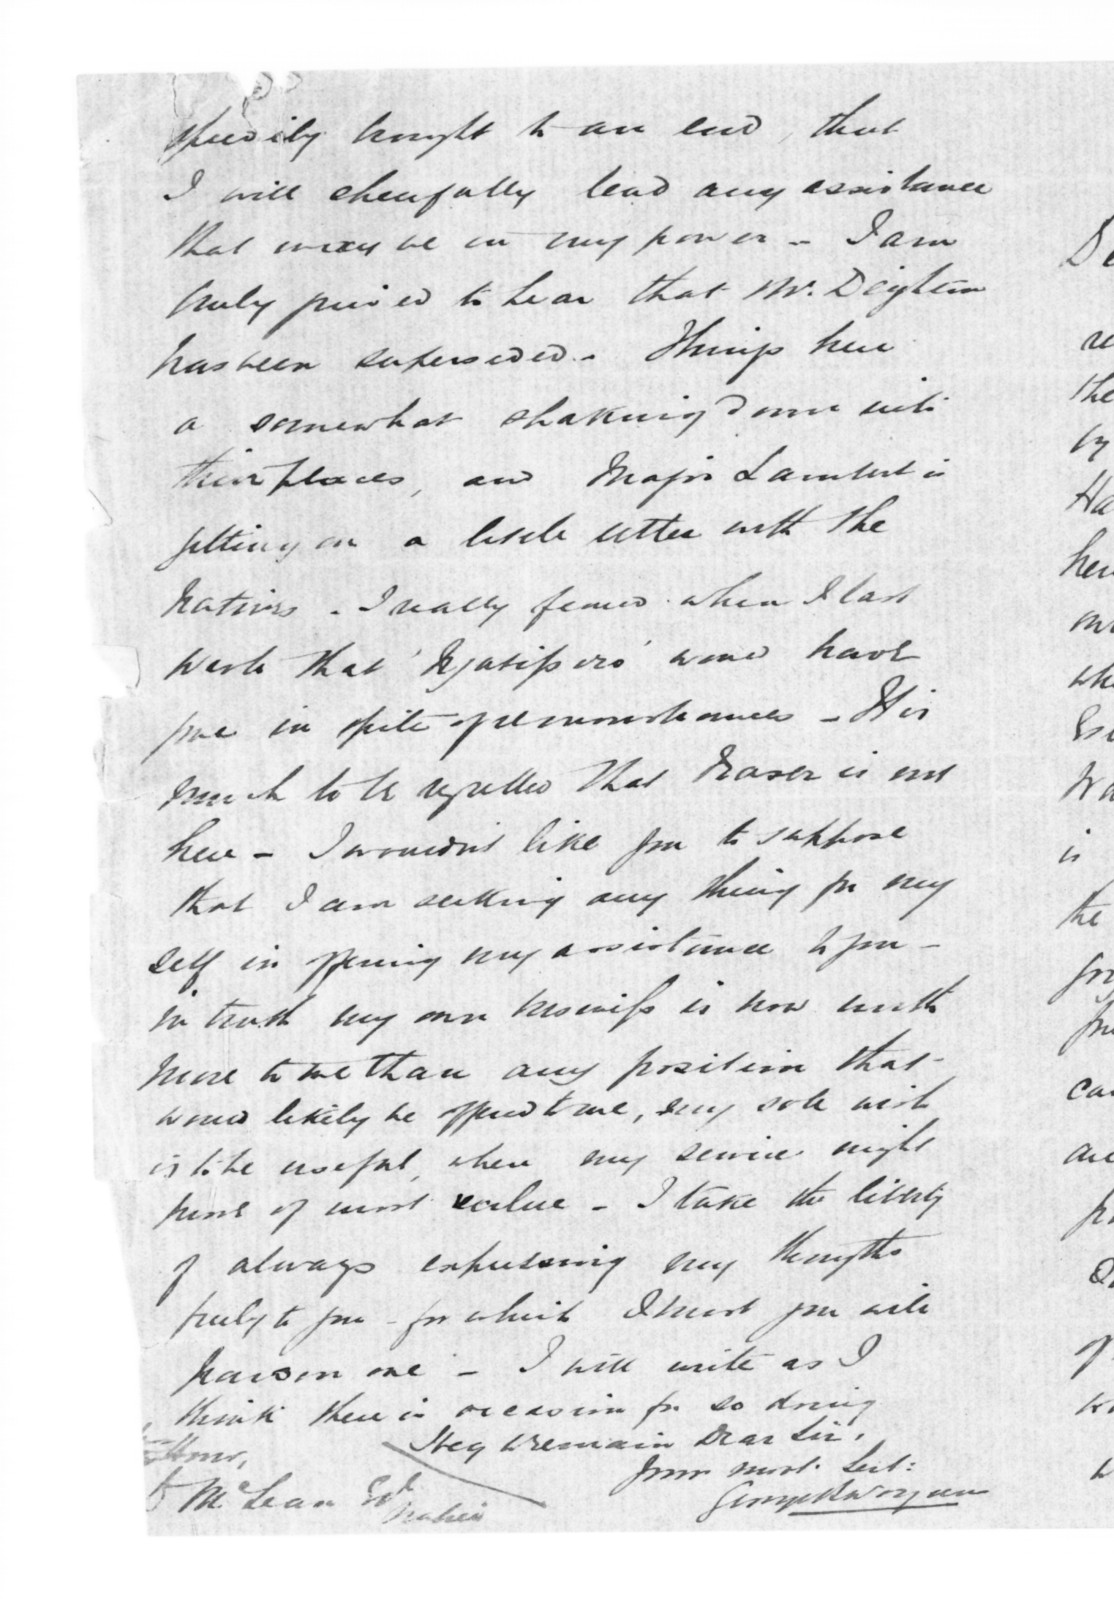 speedily brought to an end, that
I will cheerfully lend any assistance
that may be in my power - I am
truly grieved to hear that Mr. Deighton
has been superseded - Things here
a somewhat shaking down into
their places, and Major Lambert is
getting on a little better with the
Natives - I really feared when I last
wrote that 'Ngatiporo' would have
gone in spite of remonstrances - It is
much to be regretted that Fraser is not
here - I wouldn't like you to suppose
that I am seeking any thing for my
self in offering my assistance to you -
in truth my own business is now worth
more to me than any position that
would likely be offered to me, my sole wish
is to be useful, when my service might
prove of most value - I take the liberty
of always expressing my thoughts
freely to you - for which I trust you will
pardon me - I will write as I
think there is occasion for so doing
I beg to remain Dear Sir,
Your most. Sevt:
George B Worgan
Honr,
McLean Esq
Napier
De
re
the
by
Ha
her
whe
Wa
is
the
can
are